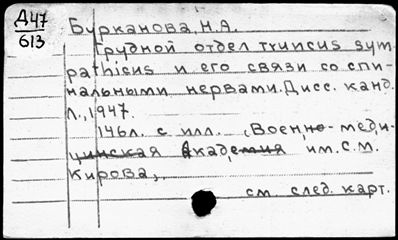 Д47
613
Бурканова, Н.А.
Грудной отдел truncus sym-
pathicus и его связи со спи-
нальными нервами. Дисс. канд.
Л., 1947.
146л. с илл. (Военно-меди-
цинская Академия им. С.М.
Кирова,
см. след. карт.